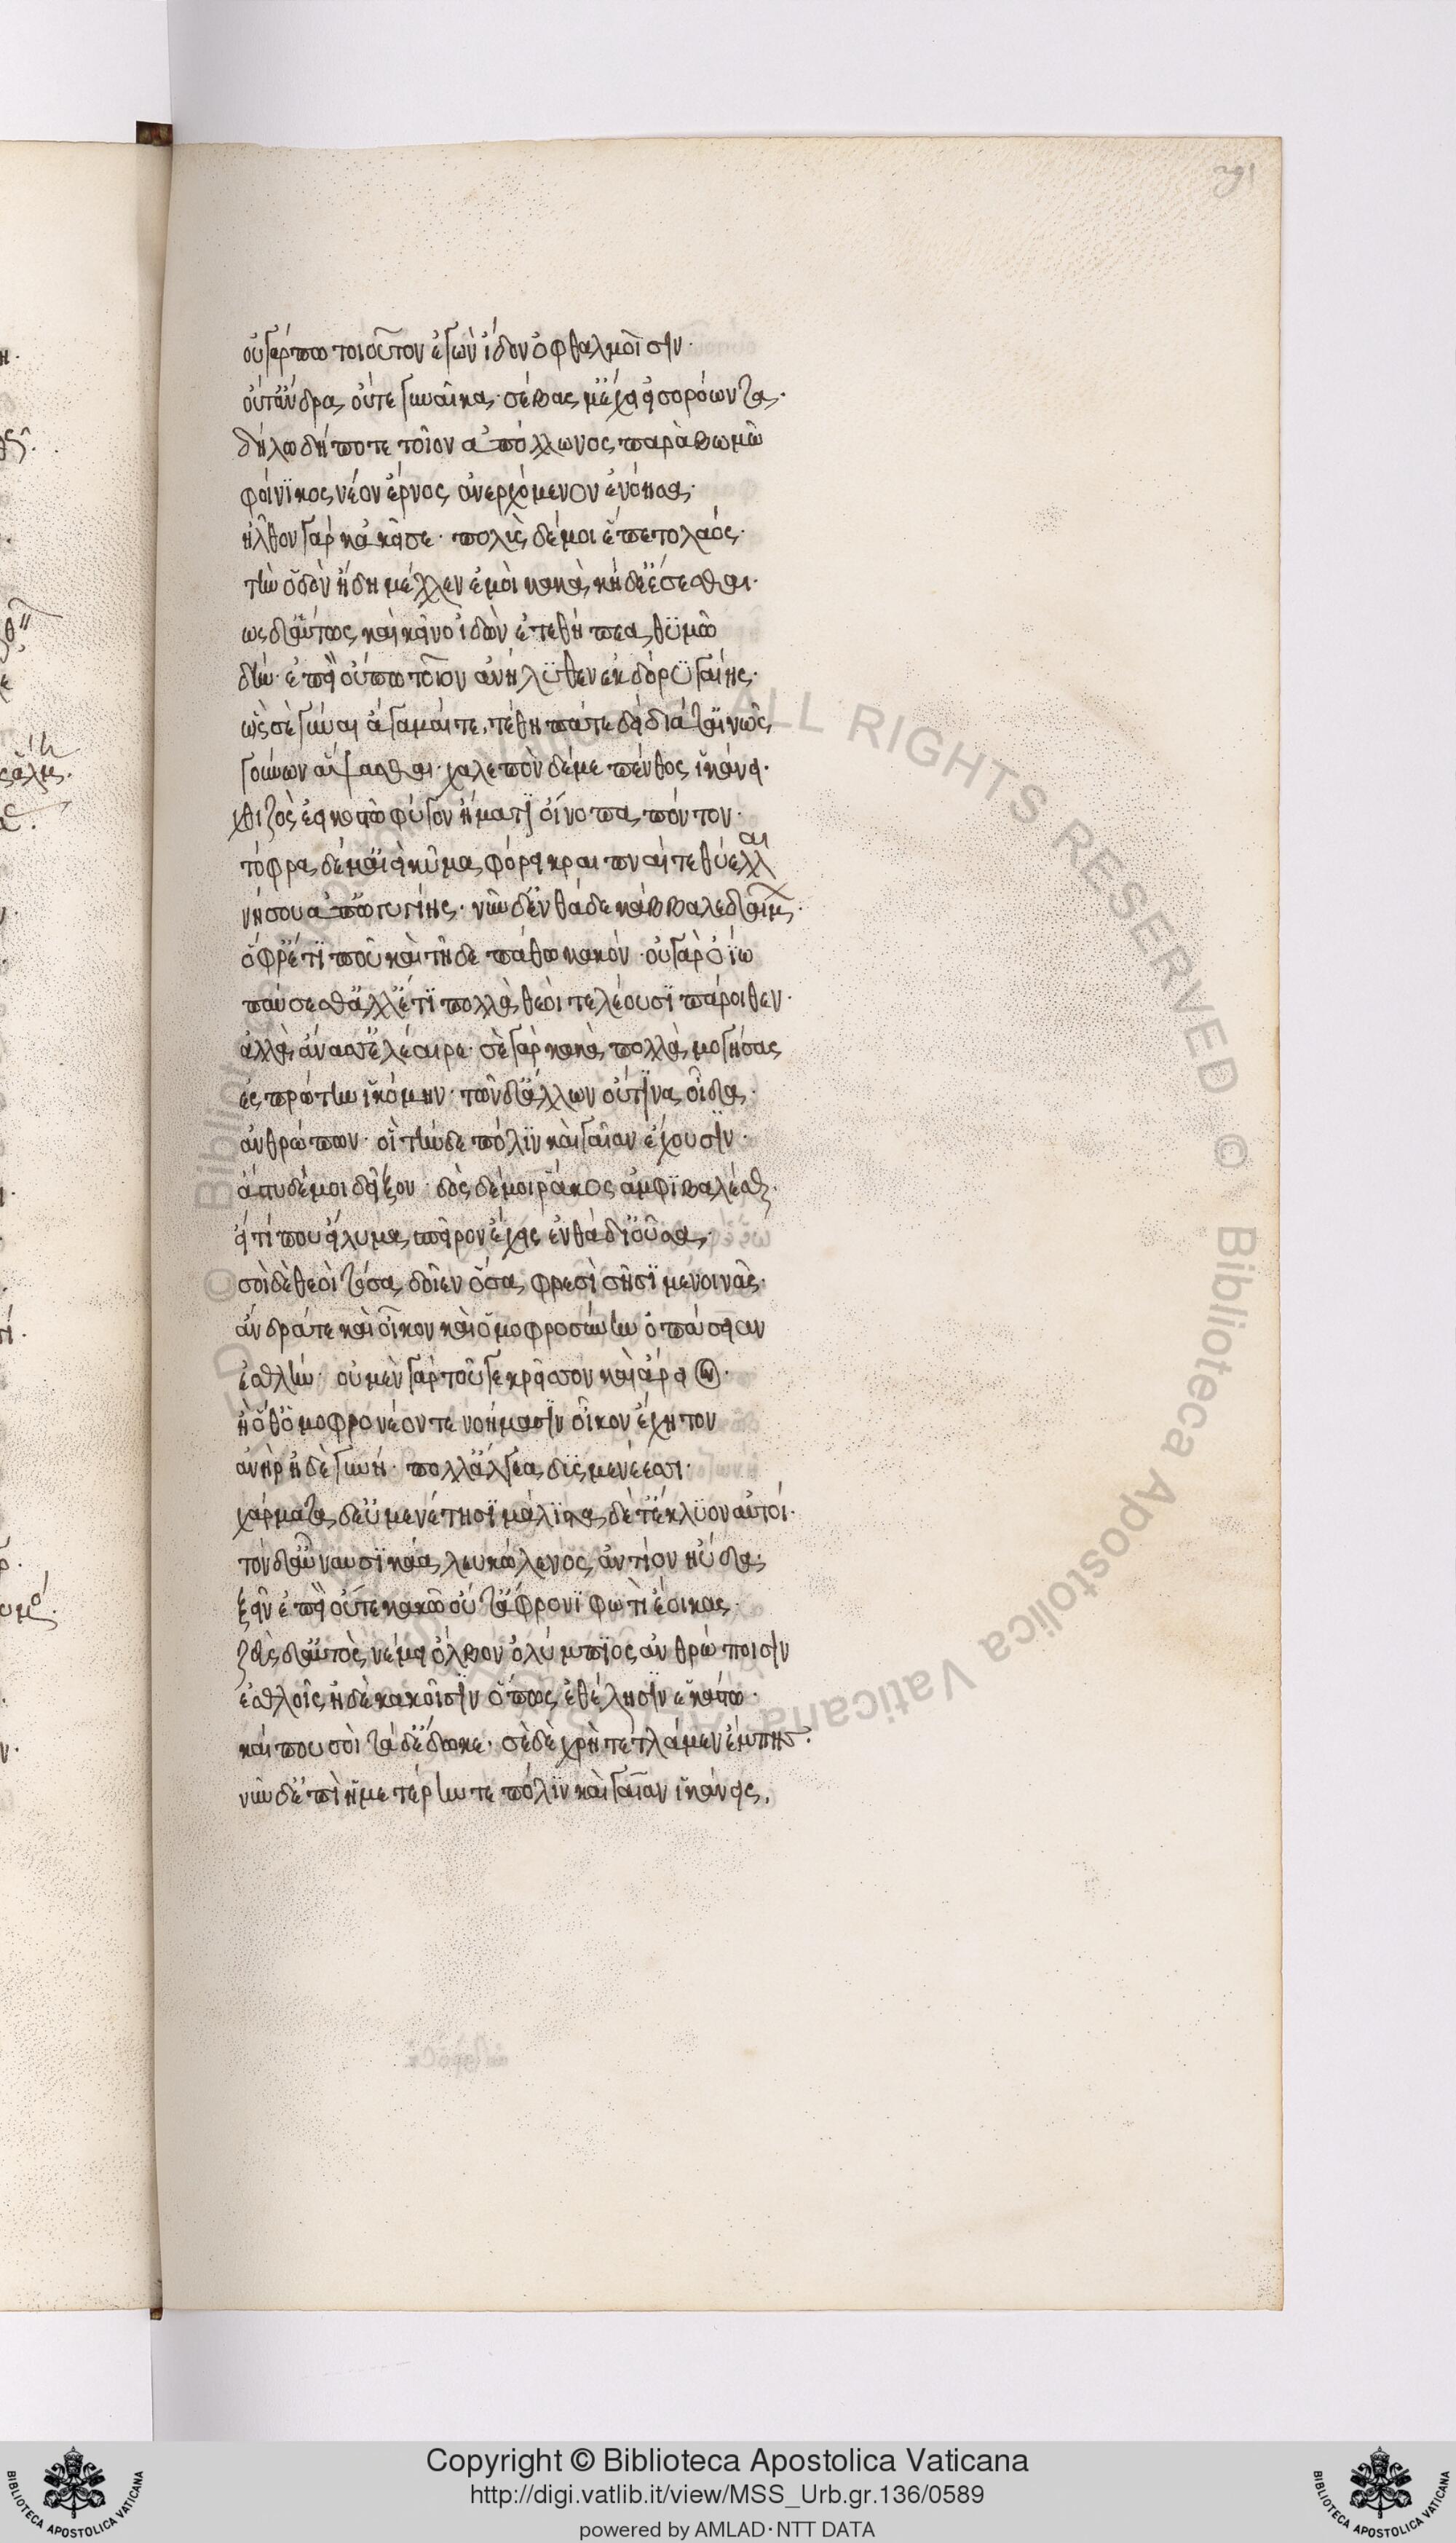 291
οὐ γάρ πω τοιοῦτον ἐγὼν ἴδον ὀφθαλμοῖσιν·
οὔτ' ἄνδρα οὔτε γυναῖκα· σέβας μ' ἔχει εἰσορόωντα·
δήλῳ δήποτε τοῖον ἀπόλλωνος παρὰ βωμῶ
φοίνικος νέον ἔρνος ἀνερχόμενον ἐνόησα·
ἦλθον γὰρ κἀκεῖσε· πολὺς δέ μοι ἕπετο λαός·
τὴν ὁδὸν ἣ δὴ μέλλεν ἐμοὶ κακὰ κήδε' ἔσεσθαι·
ὡς δ' αὔτως καὶ κεῖνο ἰδὼν ἐτεθήπεα θυμῶ
δήν· ἐπεὶ οὔπω τοῖον ἀνήλυθεν ἐκ δόρυ γαίης·
ὡς σὲ γύναι ἄγαμαί τε, τέθηπά τε δείδιά τ' αἰνῶς
γούνων ἅψασθαι· χαλεπὸν δέ με πένθος ἱκάνει·
χθιζὸς ἐεικοστῶ φύγον ἤματι οἴνοπα πόντον·
τόφρα δέ μ' αἰεὶ κῦμα φόρει κραιπναί τε θύελλαι
νήσου ἀπ' ὠγυγίης· νῦν δ' ἐνθάδε κάββαλε δαίμ
ὄφρ' ἔτι που καὶ τῆδε πάθω κακόν· οὐ γὰρ ὀΐω
παύσεσθ' ἀλλ' ἔτι πολλὰ θεοὶ τελέουσι πάροιθεν·
ἀλλὰ ἄνασσ' ἐλέαιρε· σὲ γὰρ κακὰ πολλὰ μογήσας
ἐς πρώτην ἱκόμην· τῶν δ' ἄλλων οὔτινα οἶδα·
ἀνθρώπων· οἳ τήνδε πόλιν καὶ γαῖαν ἔχουσιν·
ἄστυ δέ μοι δεῖξον· δὸς δέ μοι ῥάκος ἀμφιβαλέσθ·
εἴ τί που εἴλυμα σπείρων ἔχεις ἐνθάδ' ἰοῦσα·
σοὶ δὲ θεοὶ τόσα δοῖεν ὅσα φρεσὶ σῆσι μενοινᾶς·
ἄνδρά τε καὶ οἶκον καὶ ὁμοφροσύνην ὀπάσειαν
ἐσθλήν· οὐ μὲν γὰρ τοῦ γε κρεῖσσον καὶ ἄρειον·
ἢ ὅθ' ὁμοφρονέοντε νοήμασιν οἶκον ἔχητον
ἀνὴρ ἠδὲ γυνή· πόλλ' ἄλγεα δυσμενέεσσι·
χάρματα δ' εὐμενέτησι μάλιστα δέ τ' ἔκλυον αὐτοί·
τὸν δ' αὖ ναυσικάα λευκώλενος ἀντίον ηὔδα·
ξεῖν' ἐπεὶ οὔτε κακῶ οὔτ' ἄφρονι φωτὶ ἔοικας·
ζεὺς δ' αὐτὸς νέμει ὄλβον ὀλύμπιος ἀνθρώποισιν
ἐσθλοῖς ἠδὲ κακοῖσιν ὅπως ἐθέλησιν ἑκάστω·
καί που σοὶ τάδ' ἔδωκε· σὲ δὲ χρὴ τετλάμεν ἔμπης·
νῦν δ' ἐπεὶ ἡμετέρην τε πόλιν καὶ γαῖαν ἱκάνεις,
Copyright © Biblioteca Apostolica Vaticana
http://digi.vatlib.it/view/MSS_Urb.gr.136/0589
powered by AMLAD·NTT DATA